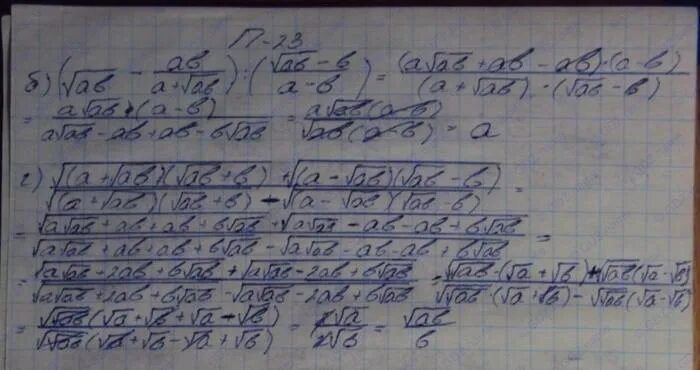 П-23
б) (√ab − ab/(a+√ab)) : ((√ab − b)/(a − b)) = ((a√ab + ab − ab)·(a − b))/((a + √ab)·(√ab − b))
= (a√ab·(a − b))/(a√ab − ab + ab − b√ab) = (a√ab(a − b))/(√ab(a − b)) = a
г) (√((a + √ab)(√ab + b)) + √((a − √ab)(√ab − b)))/(√((a + √ab)(√ab + b)) − √((a − √ab)(√ab − b))) =
= (√(a√ab + ab + ab + b√ab) + √(a√ab − ab − ab + b√ab))/(√(a√ab + ab + ab + b√ab) − √(a√ab − ab − ab + b√ab)) =
= (√(a√ab + 2ab + b√ab) + √(a√ab − 2ab + b√ab))/(√(a√ab + 2ab + b√ab) − √(a√ab − 2ab + b√ab)) = (√√ab·(√a + √b) + √√ab(√a − √b))/(√√ab·(√a + √b) − √√ab(√a − √b))
= (√√ab(√a + √b + √a − √b))/(√√ab(√a + √b − √a + √b)) = 2√a/2√b = √ab/b